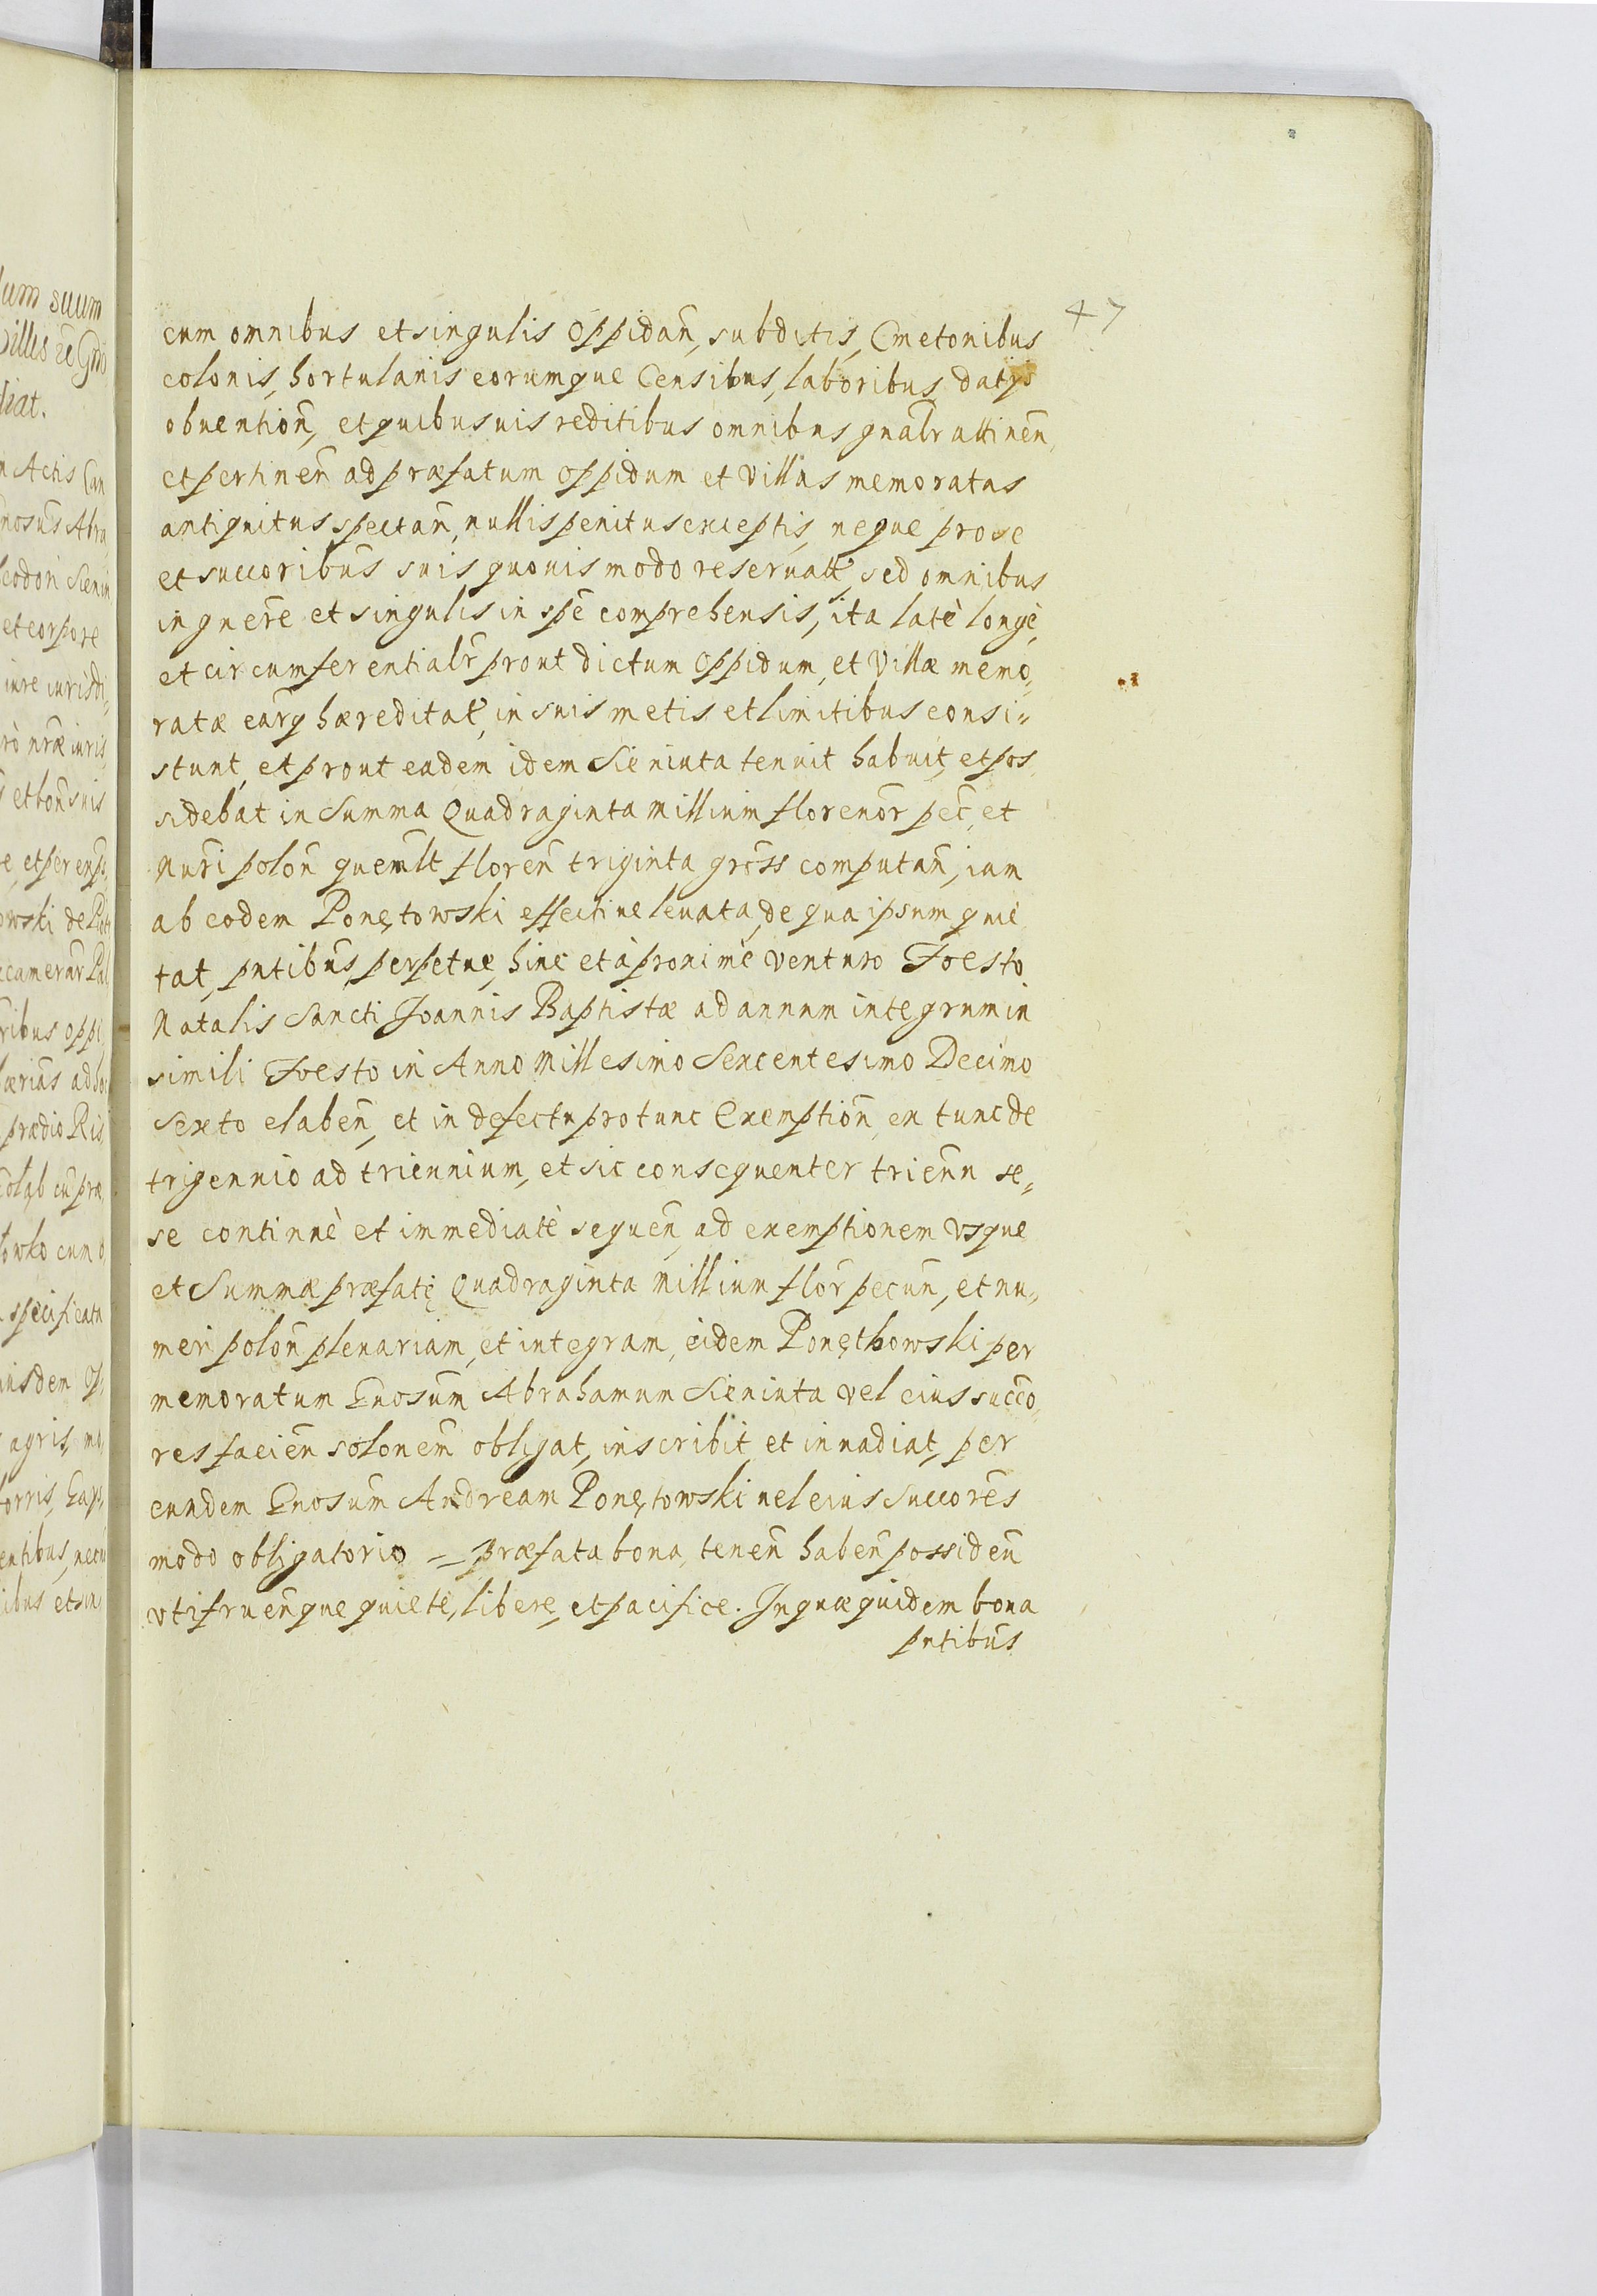 47
cum omnibus et singulis oppidañ, subditis, Cmetonibus
colonis, hortulanis eorumque Censibus, laboribus datijs
obuentioñ, et quibusuis reditibus omnibus gnalr attineñ,
et pertineñ ad præfatum oppidum et villas memoratas
antiquitus spectañ, nullis penitus exceptis, neque pro se
et succoribus suis quouis modo reseruatt, sed omnibus
in gnere et singulis in spe comprehensis, ita latè longè,
et circumferentialr prout dictum oppidum, et Villæ memo„
ratæ earq hæreditat, in suis metis et limitibus consi„
stunt, et prout eadem idem Sieniuta tenuit habuit, et pos„
sidebat in Summa Quadraginta millium florenor pec, et
nuri poloñ quemlt floreñ triginta gross computañ, iam
ab eodem Ponętowski effectiue leuata, de qua ipsum quie
tat, pntibus, perpetue, hinc et à proximè venturo Foesto
Natalis Sancti Joannis Baptistæ ad annum integrum in
simili Foesto in Anno Millesimo Sexcentesimo Decimo
Sexto elabeñ, et in defectu pro tunc Exemptioñ, ex tunc de
trigennio ad triennium, et sic consequenter trienn se„
se continuè et immediatè sequeñ, ad exemptionem vsque
et Summæ præfatę Quadraginta Millium flor pecuñ, et nu„
meri poloñ plenariam, et integram, eidem Ponęthowski per
memoratum Gnosum Abrahamum Sieniuta vel eius succo„
res facieñ solonem obligat, inscribit, et inuadiat, per
eundem Gnosum Andream Ponętowski uel eius Succores
modo obligatorio = præfata bona, teneñ habeñ possideñ
vti frueñque quiete, libere, et pacifice. In quæ quidem bona
pntibus